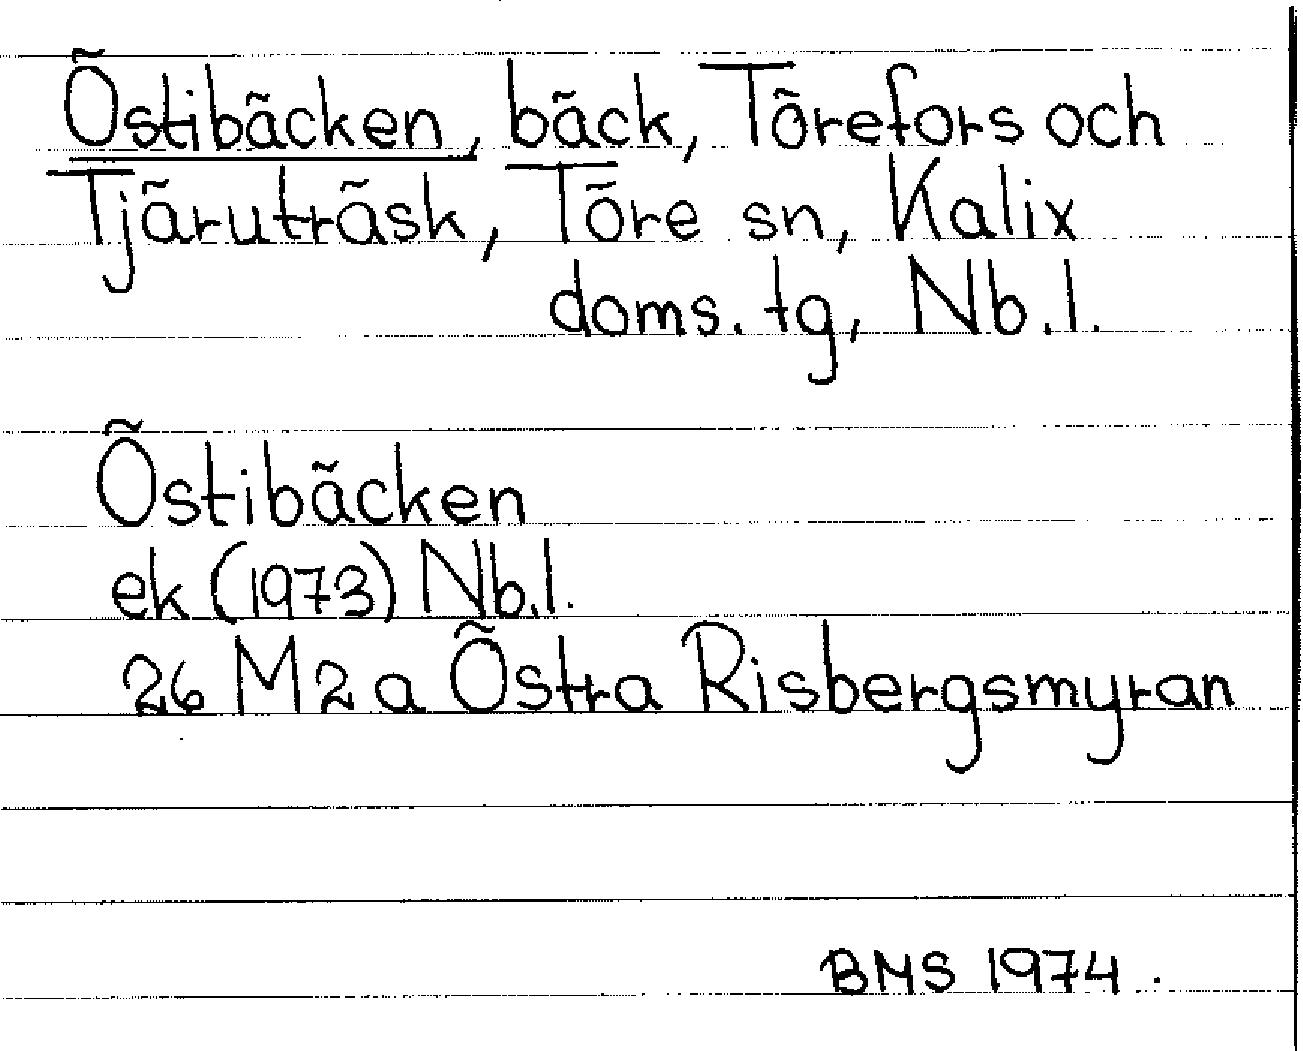 Östibäcken, bäck, Törefors och
Tjäruträsk, Töre sn, Kalix
doms. tg, Nb.l.
Östibäcken
ek (1973) Nb.l.
26 M 2 a Östra Risbergsmyran
BMS 1974.